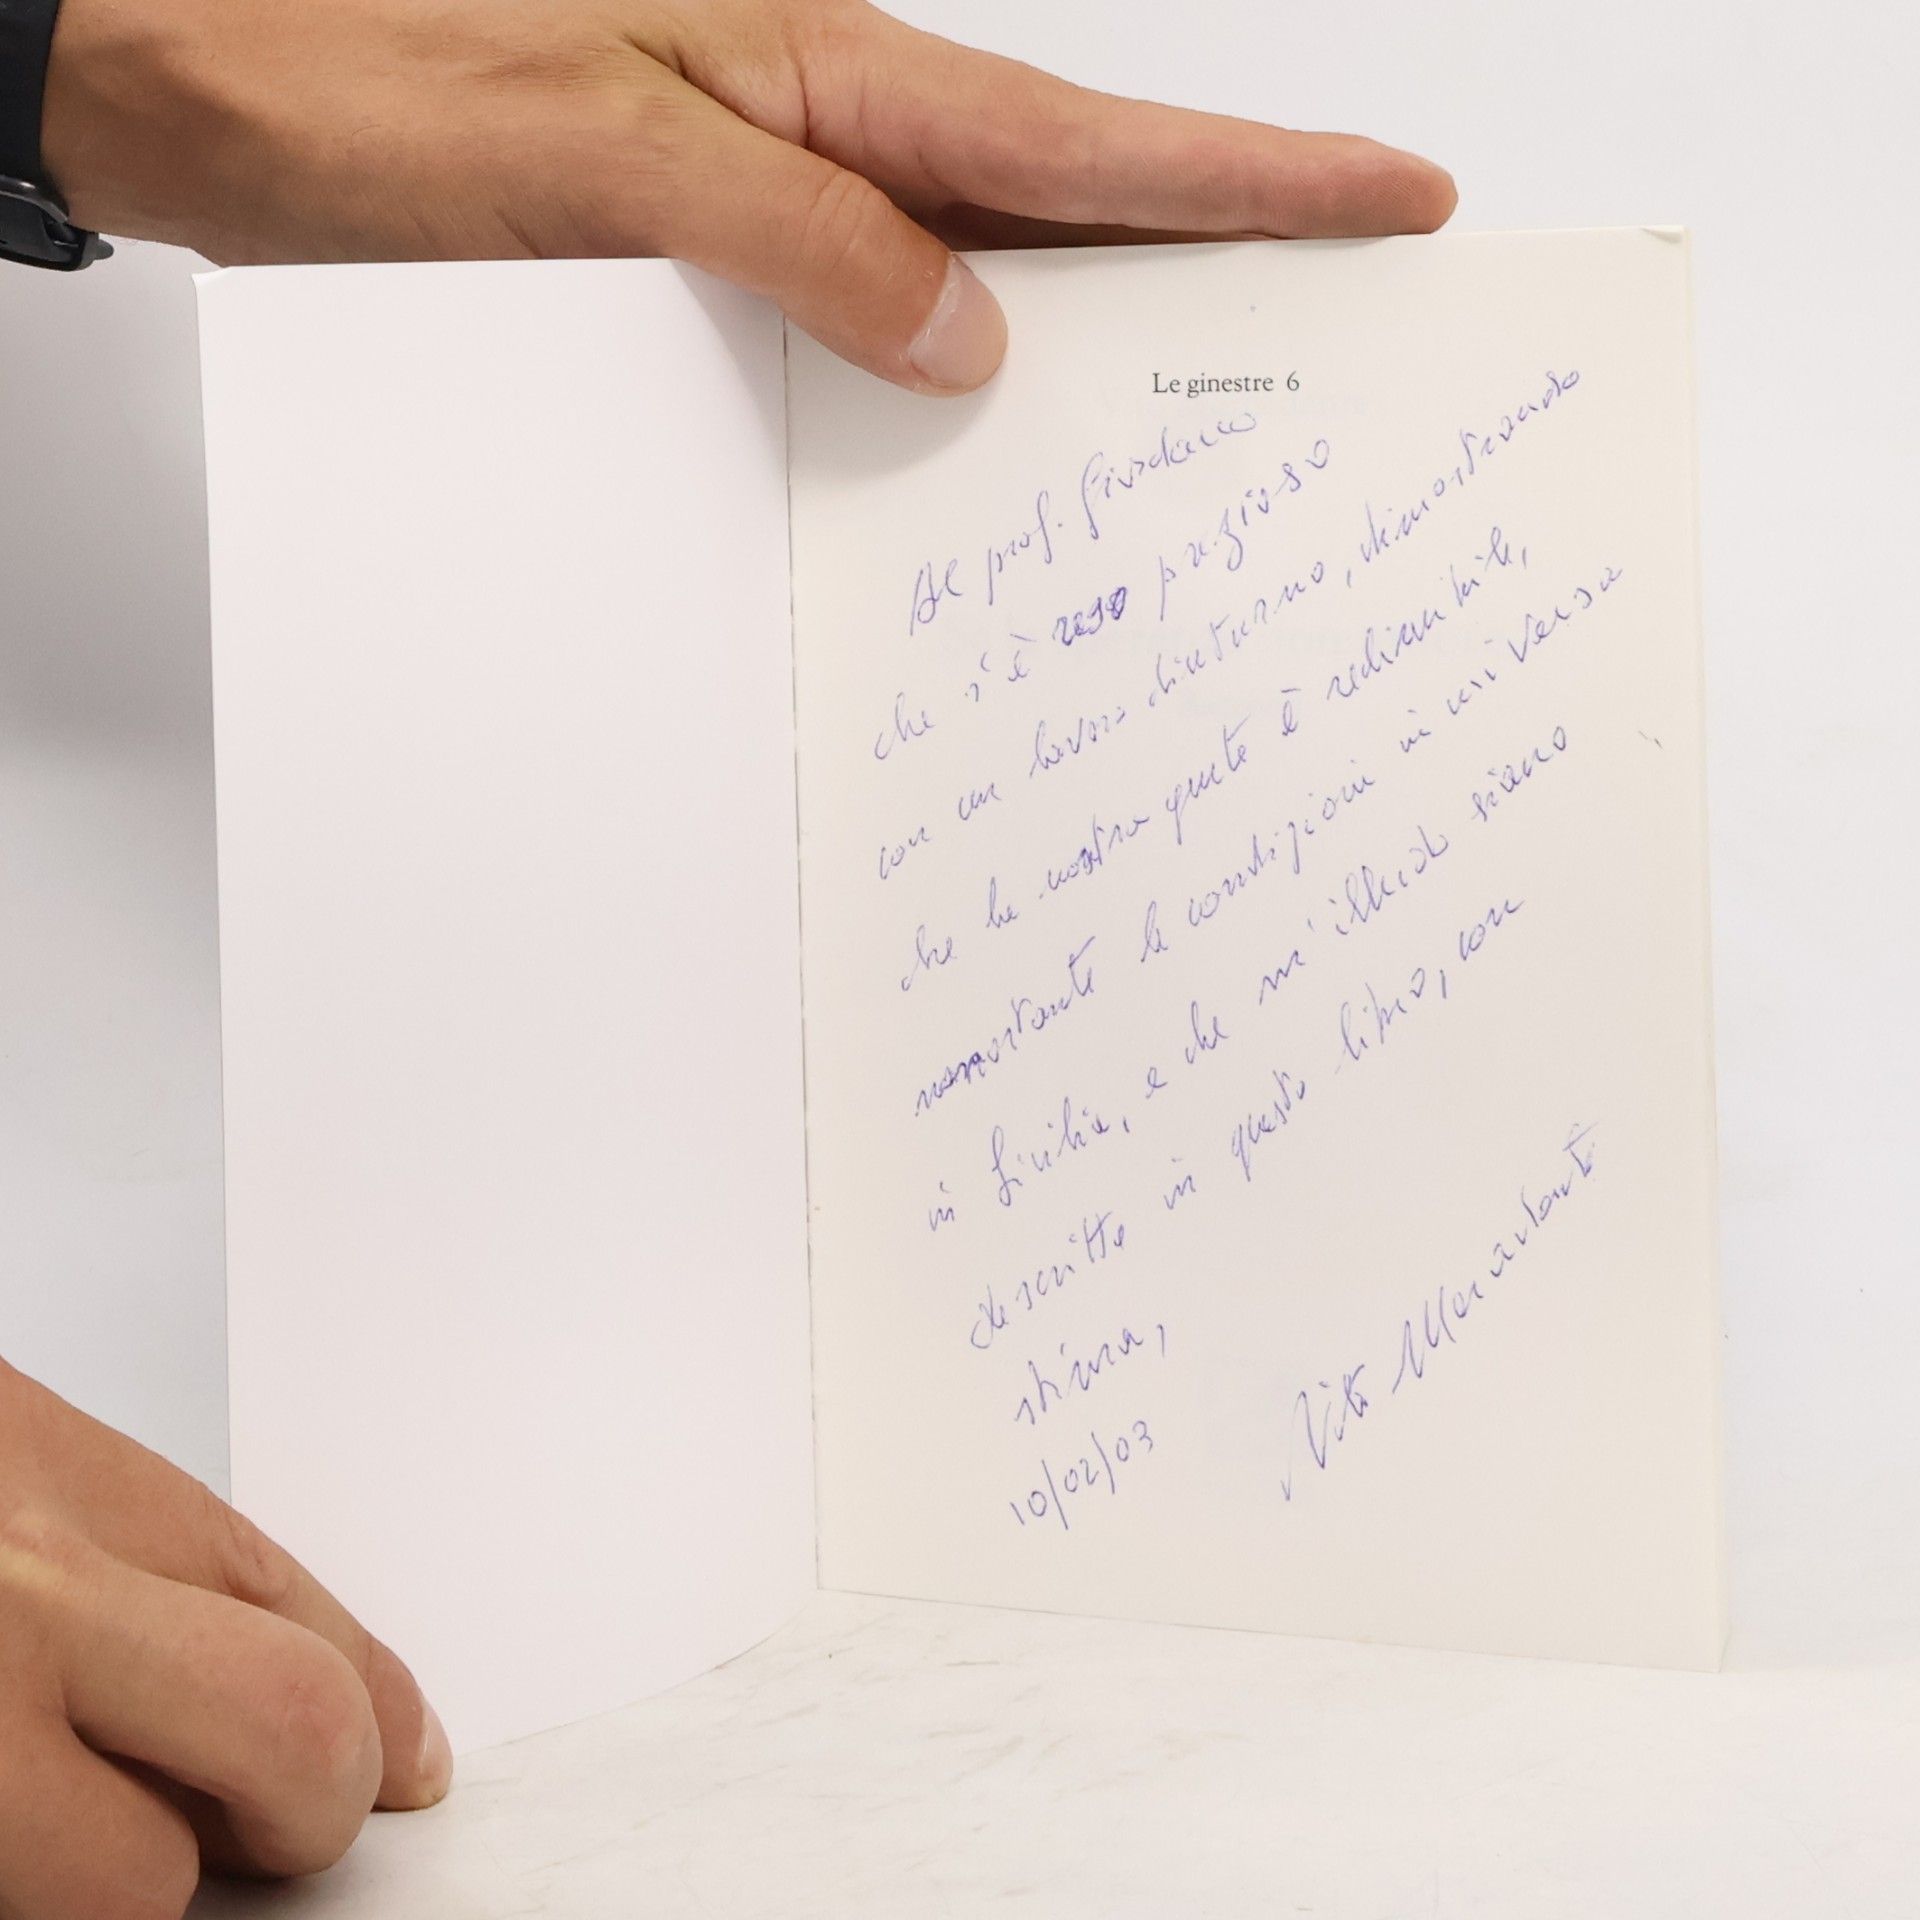 Le ginestre 6
Al prof. Giordano
che s'è reso prezioso
con un lavoro diuturno, dimostrando
che la nostra gente è redimibile,
nonostante le condizioni in cui versa
in Sicilia, e che m'illudo siano
descritte in questo libro, con
stima,
10/02/03
Vito Mercadante